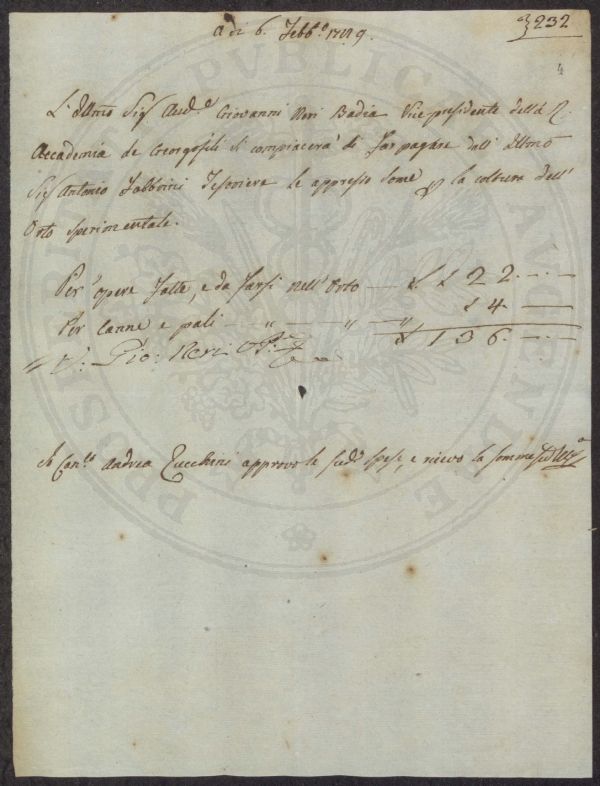 232
4
A dì 6. Febb.º 1789.
L'Illmo Sig.r Aud.e Giovanni Neri Badia Vice presidente della R.
Accademia de Georgofili si compiacerà di far pagare dall' Illmo
Sig.r Antonio Fabbrini Tesoriere le appresso Some la coltura dell'
Orto sperimentale.
Per opere fatte, e da farsi nell' Orto — £ 122. — —
Per canne e pali — " — " — " 14. —
£ 136. — —
V: Gio: Neri
Io Can.co Andrea Zucchini approvo le sud.e spese, e ricevo la somma sud.a
PROSPERITATI PUBLICAE AUGENDAE